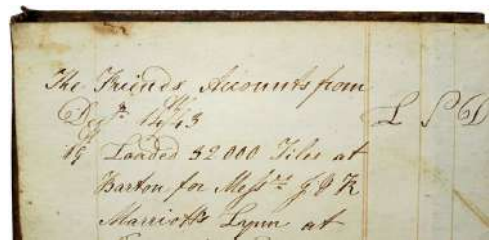 The Friends Accounts from
Decr 14th/13 L S D
19 Loaded 32000 Tiles at
Barton for Messrs J & R
Marriotts Lynn at